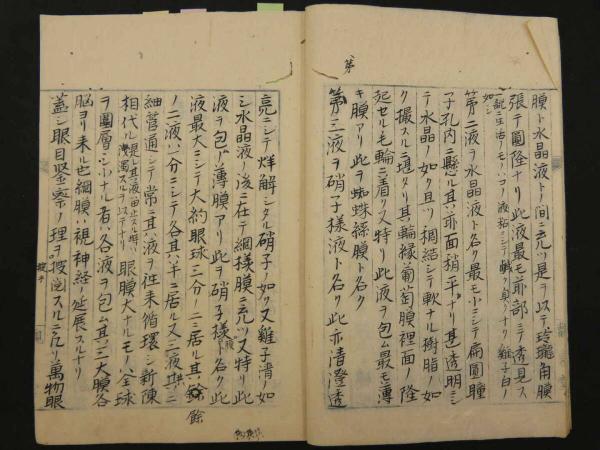 膜ト水晶液トノ間ニ充ツ是ヲ以テ玲瓏角膜
張テ圓隆ナリ此液最モ前部ニテ透見ス
一説ニ生活ノモノハコノ液粘シテ鹹ク臭ノナリ雞子白ノ
如シ
第二液ヲ水晶液ト名ク最モ小ニシテ扁圓瞳
子孔内ニ懸ル其前面稍平ナリ甚透明ニシ
テ水晶ノ如ク且ツ稠結シテ軟ナル樹脂ノ如
ク撮スルニ堪タリ其輪縁葡萄膜裡面ノ隆
起セル毛輪ニ着ク又特リ此液ヲ包ム最モ薄
キ膜アリ此ヲ蜘蛛絲膜ト名ク
第三液ヲ硝子様液ト名ク此亦清澄透
第
亮ニシテ烊解シタル硝子ノ如ク又雞子清ノ如
シ水晶液ノ後ニ在テ網様膜ニ充ツ又特リ此
液ヲ包ム薄膜アリ此ヲ硝子様膜ト名ク此
液最大ニシテ大約眼球三分ノ二ニ居ル其餘
餘
ノ二液ハ一分ニシテ各其半ニ居ル又三液共ニ
細管通シテ常ニ其液ヲ往来循環シ新陳
相代ル 眼膜大ナルモノハ全球
ヲ圍層シ小ナル者ハ各液ヲ包ム其三大膜各
脳ヨリ来ル也網膜ハ視神経ノ延展スルナリ
蓋シ眼目堅察ノ理ヲ捜窮スルニ凡ソ萬物眼